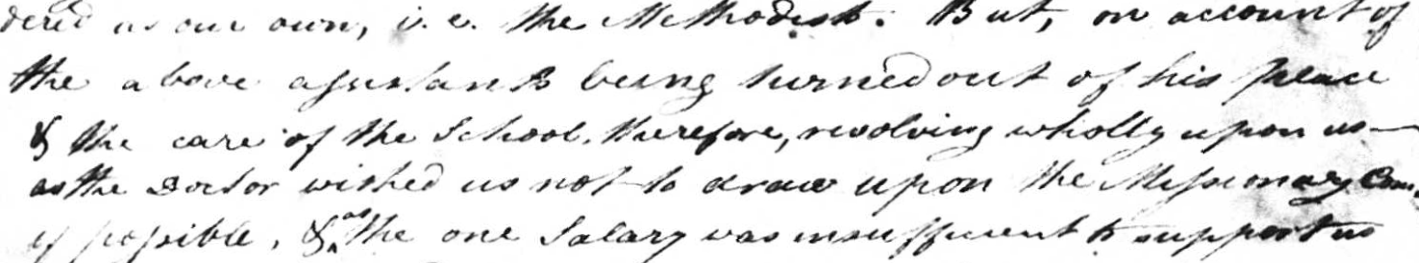 dered as our own, i.e. the Methodist. But, on account of
the above assistants being turned out of his place
& the care of the School, therefore, revolving wholly upon us—
as the Doctor wished us not to draw upon the Missionary Com.
if possible, & as the one Salary was insufficient to support us